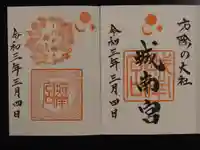 方除の大社
城南宮
令和三年三月四日
令和三年三月四日